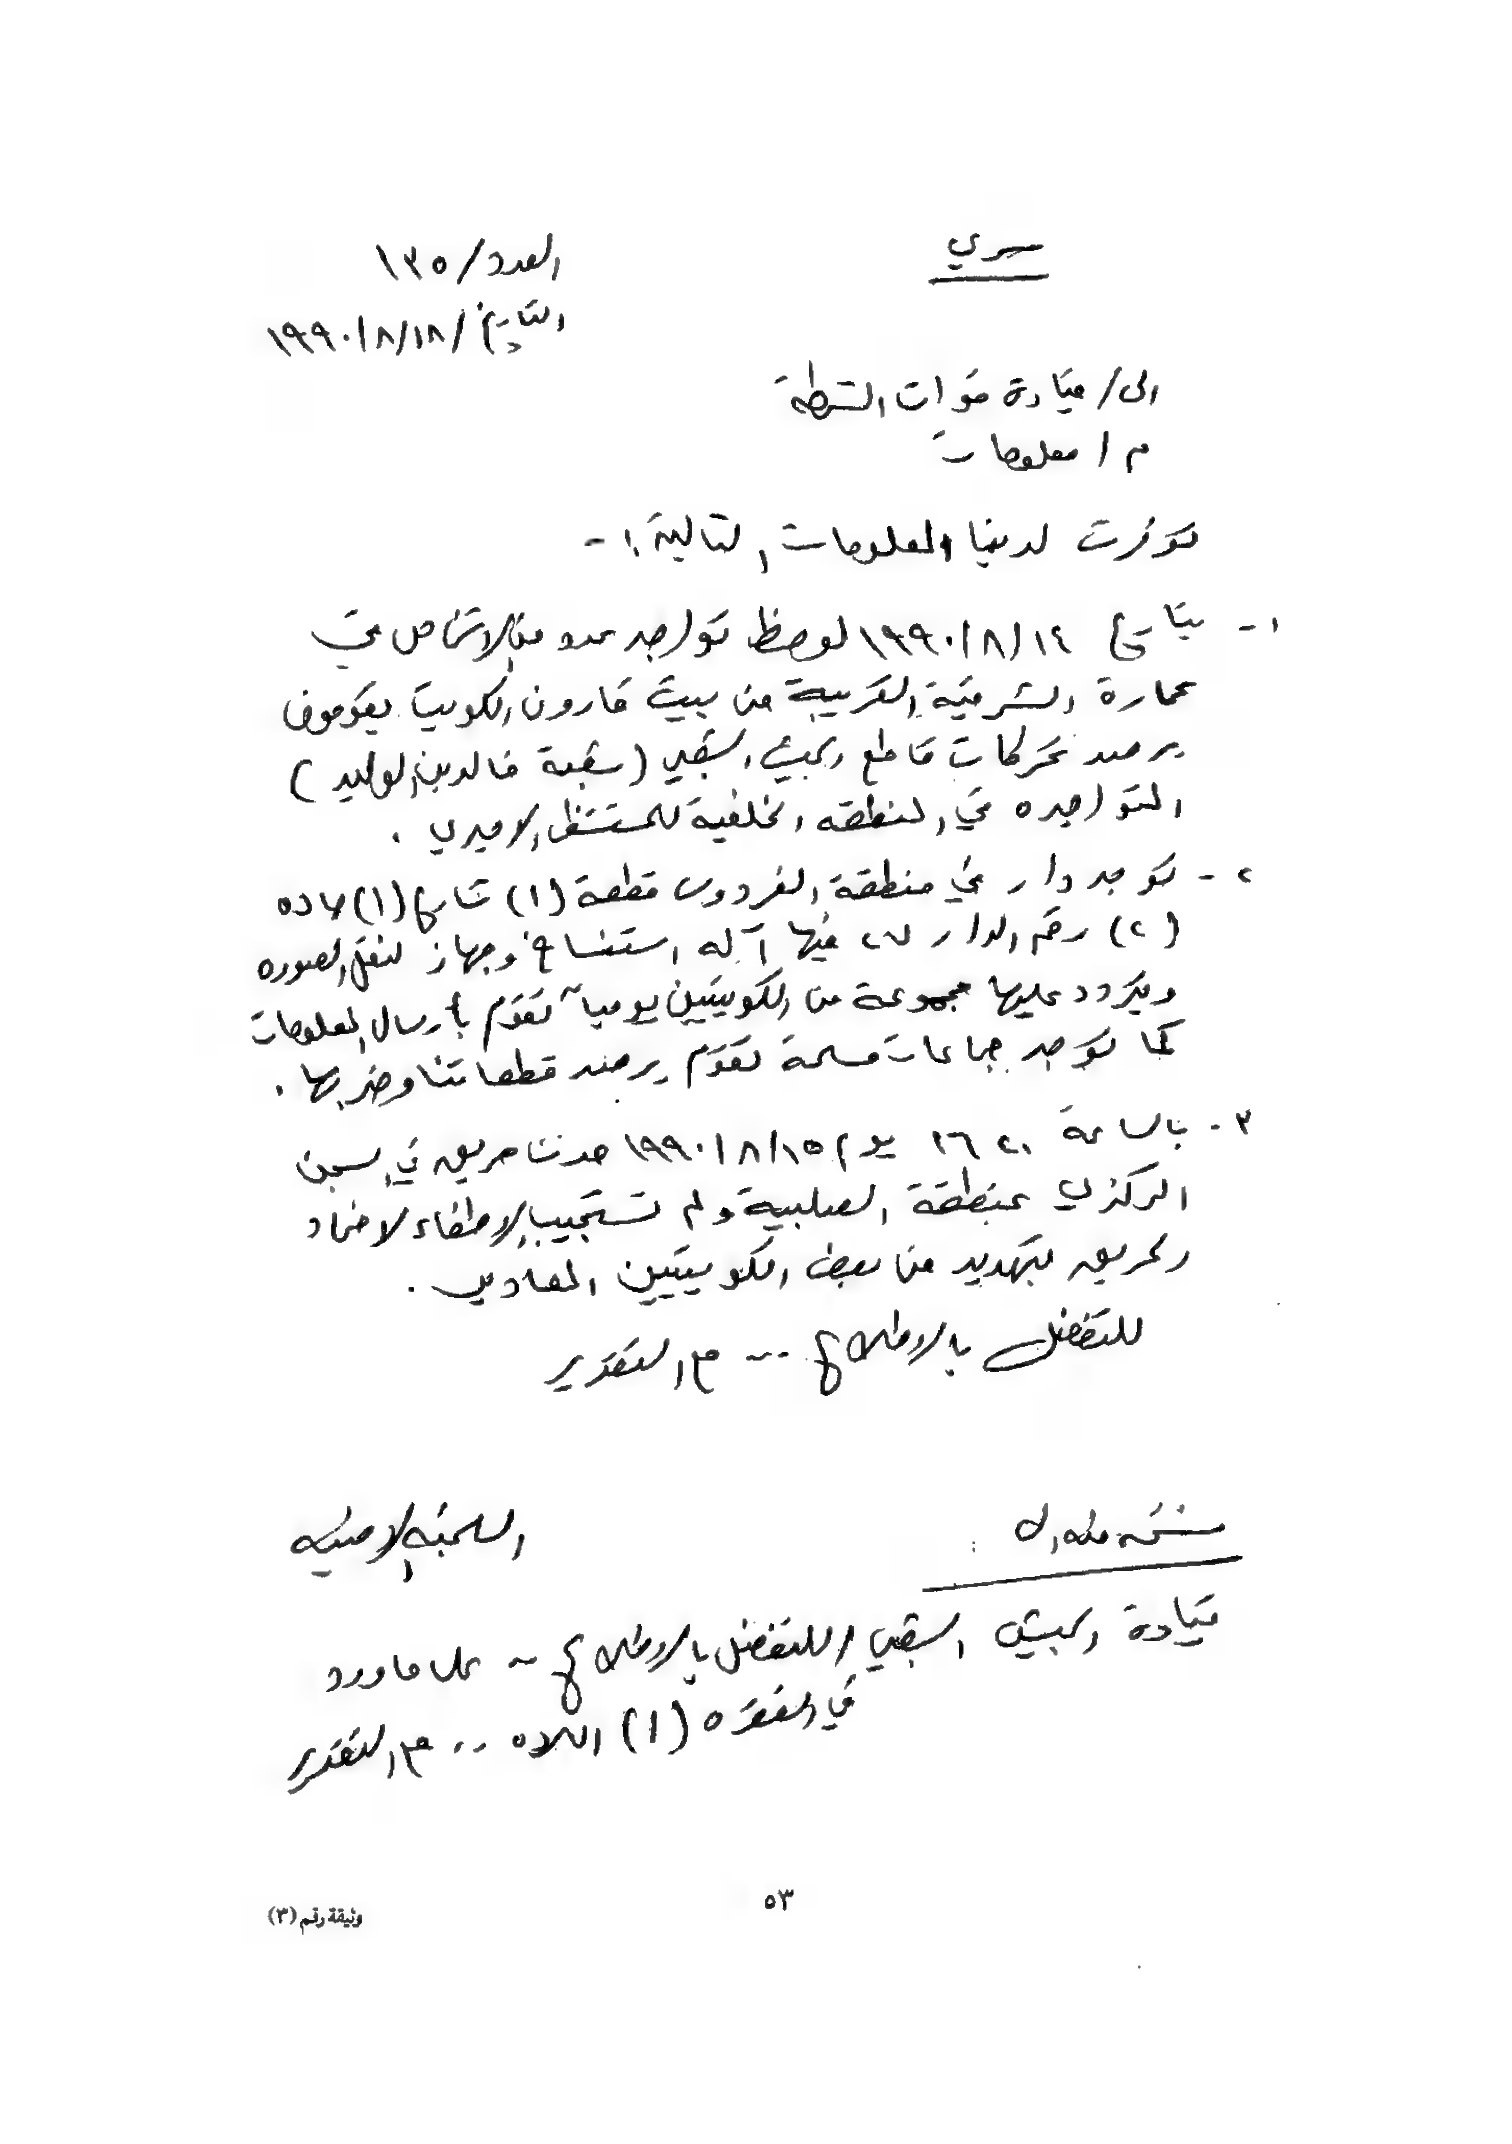 سري
العدد/ ١٣٥
التاريخ/ ١٩٩٠/٨/١٨
الى/ قيادة قوات الشرطة
م/ معلومات
توفرت لدينا المعلومات التالية :-
١- بتاريخ ١٩٩٠/٨/١٤ لوحظ تواجد عدد من الاشخاص في
عمارة الشرقية القريبة من بيت قارون الكويت يقومون
برصد تحركات قاطع الجيش الشعبي (شعبة خالد بن الوليد)
المتواجده في المنطقه الخلفية للمستشفى الاميري .
٢- توجد دار في منطقة الفردوس قطعة (١) شارع (١) جاده
(٢) رقم الدار ٢٧ فيها آله استنساخ وجهاز لنقل الصوره
ويتردد عليها مجموعة من الكويتيين يومياً تقوم بأرسال المعلومات
كما توجد جماعات مسلحة تقوم برصد قطعاتنا وضربها .
٣- بالساعة يوم ١٩٩٠/٨/١٥ حدث حريق في السجن
المركزي بمنطقة الصلبية ولم تستجيب الاطفاء لاخماد
الحريق بتهديد من بعض الكويتيين المعادين .
للتفضل بالاطلاع ... مع التقدير
نسخه منه الى :
اللجنه الامنيه
قيادة الجيش الشعبي / للتفضل بالاطلاع ~ على ماورد
في الفقره (١) اعلاه .. مع التقدير
٥٣
وثيقة رقم (٣)